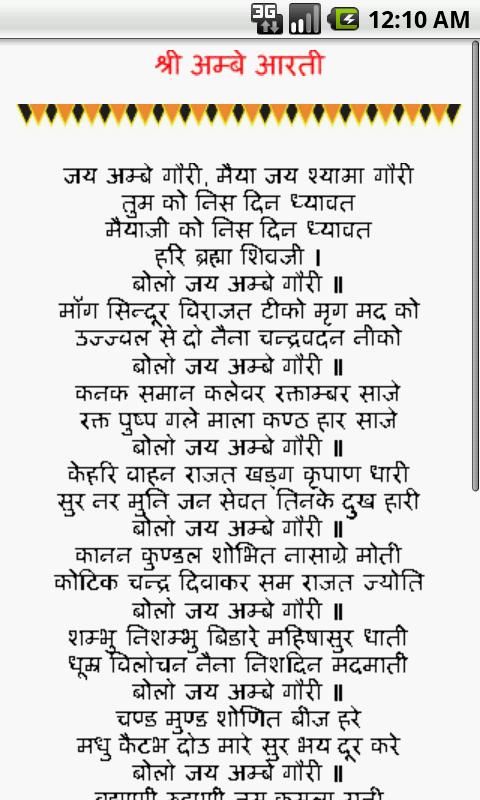 3G
12:10 AM
श्री अम्बे आरती
जय अम्बे गौरी, मैया जय श्यामा गौरी
तुम को निस दिन ध्यावत
मैयाजी को निस दिन ध्यावत
हरि ब्रह्मा शिवजी ।
बोलो जय अम्बे गौरी ॥
माँग सिन्दूर विराजत टीको मृग मद को
उज्ज्वल से दो नैना चन्द्रवदन नीको
बोलो जय अम्बे गौरी ॥
कनक समान कलेवर रक्ताम्बर साजे
रक्त पुष्प गले माला कण्ठ हार साजे
बोलो जय अम्बे गौरी ॥
केहरि वाहन राजत खड्ग कृपाण धारी
सुर नर मुनि जन सेवत तिनके दुख हारी
बोलो जय अम्बे गौरी ॥
कानन कुण्डल शोभित नासाग्रे मोती
कोटिक चन्द्र दिवाकर सम राजत ज्योति
बोलो जय अम्बे गौरी ॥
शम्भु निशम्भु बिडारे महिषासुर धाती
धूम्र विलोचन नैना निशदिन मदमाती
बोलो जय अम्बे गौरी ॥
चण्ड मुण्ड शोणित बीज हरे
मधु कैटभ दोउ मारे सुर भय दूर करे
बोलो जय अम्बे गौरी ॥